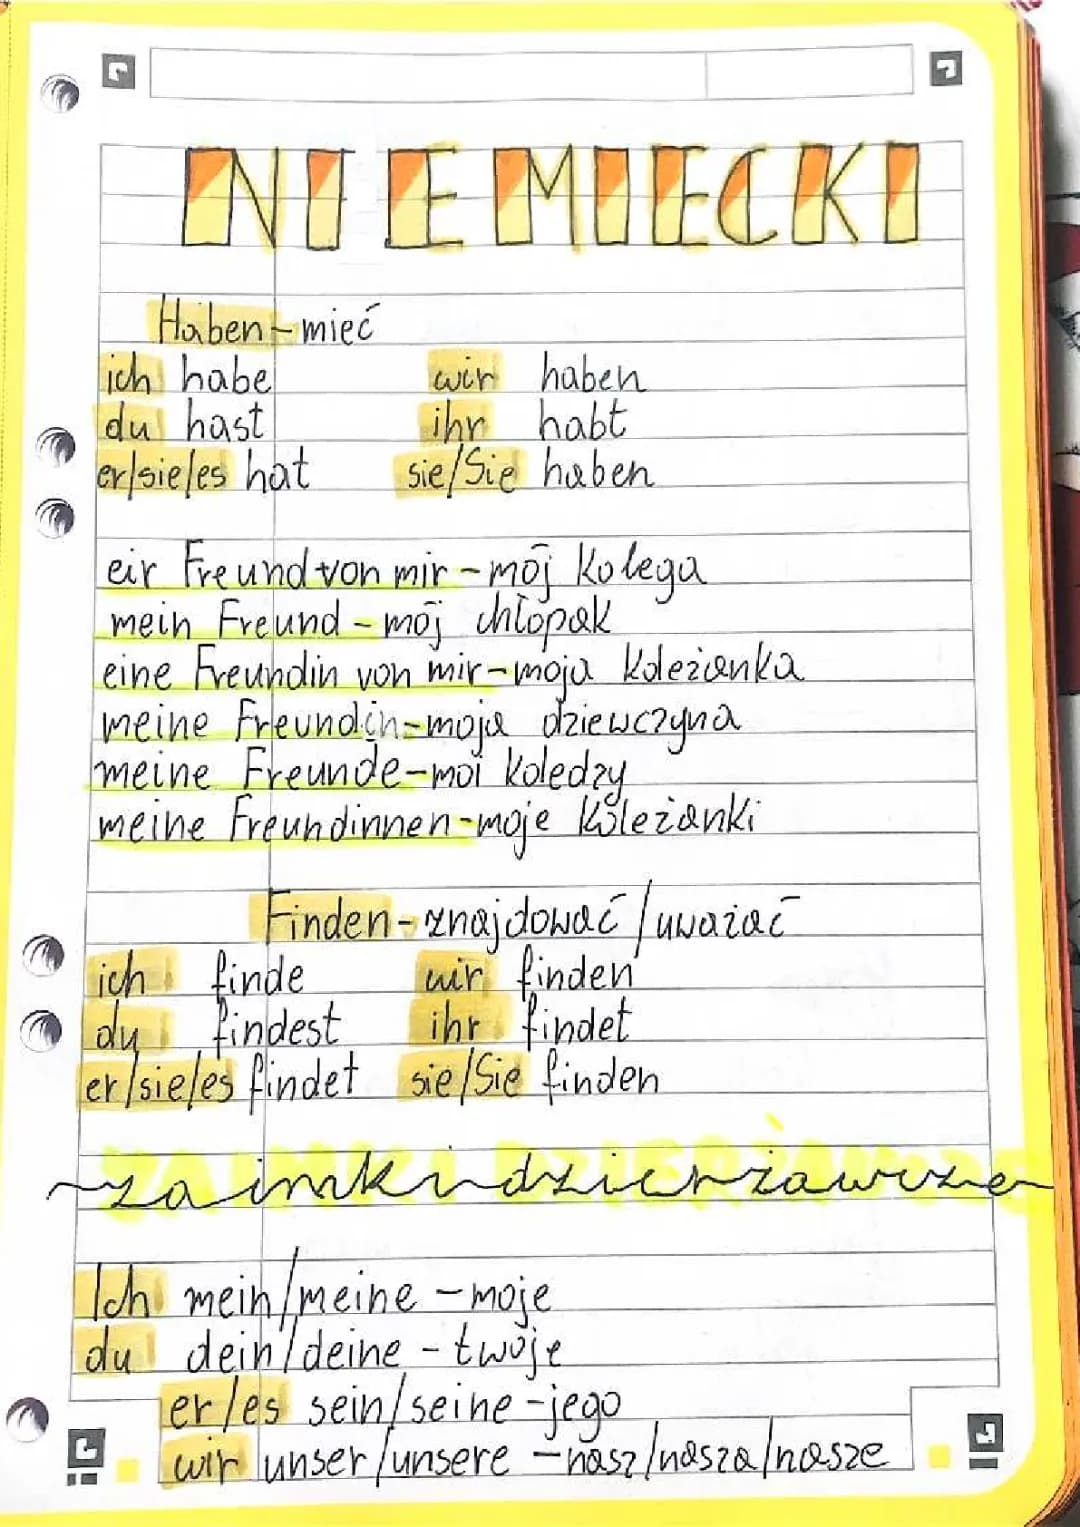 NIEMIECKI
Haben - mieć
ich habe wir haben
du hast ihr habt
er/sie/es hat sie/Sie haben
eir Freund von mir - mój kolega
mein Freund - mój chłopak
eine Freundin von mir - moja koleżanka
meine Freundin - moja dziewczyna
meine Freunde - moi koledzy
meine Freundinnen - moje koleżanki
Finden - znajdować/uważać
ich finde wir finden
du findest ihr findet
er/sie/es findet sie/Sie finden
~zaimki dzierżawcze~
Ich mein/meine - moje
du dein/deine - twoje
er/es sein/seine - jego
wir unser/unsere - nasz/nasza/nasze